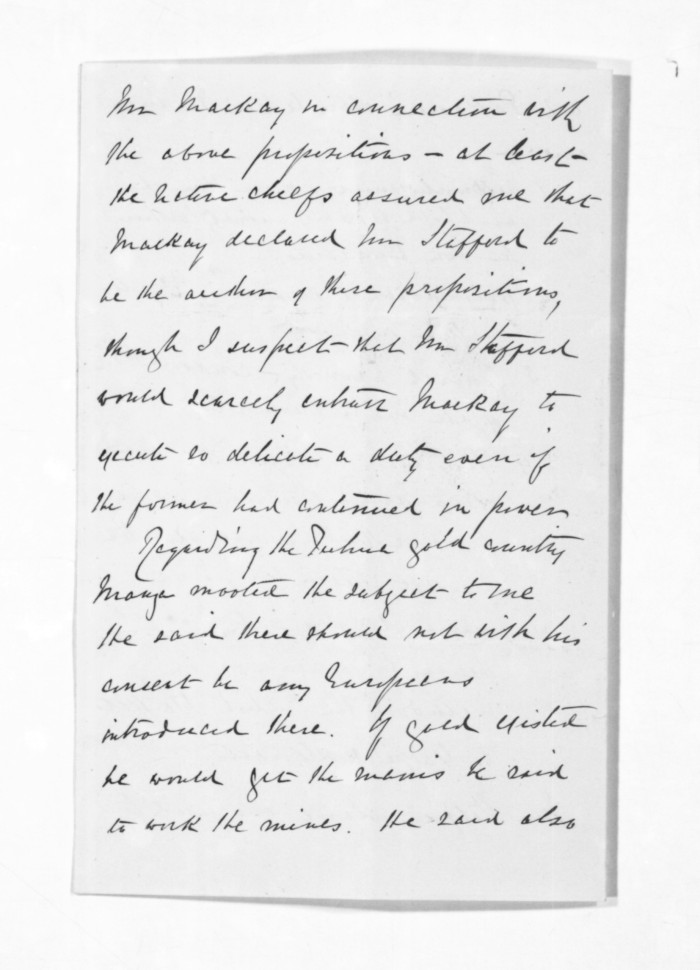 Mr Mackay in connection with
the above propositions – at least
the Native chiefs assured me that
Mackay declared Mr Stafford to
be the author of these propositions,
though I suspect that Mr Stafford
would scarcely entrust Mackay to
execute so delicate a duty even if
the former had continued in power
Regarding the Tuhua gold country
Manga mooted the subject to me
He said there should not with his
consent be any Europeans
introduced there. If gold existed
he would get the maoris he said
to work the mines. He said also